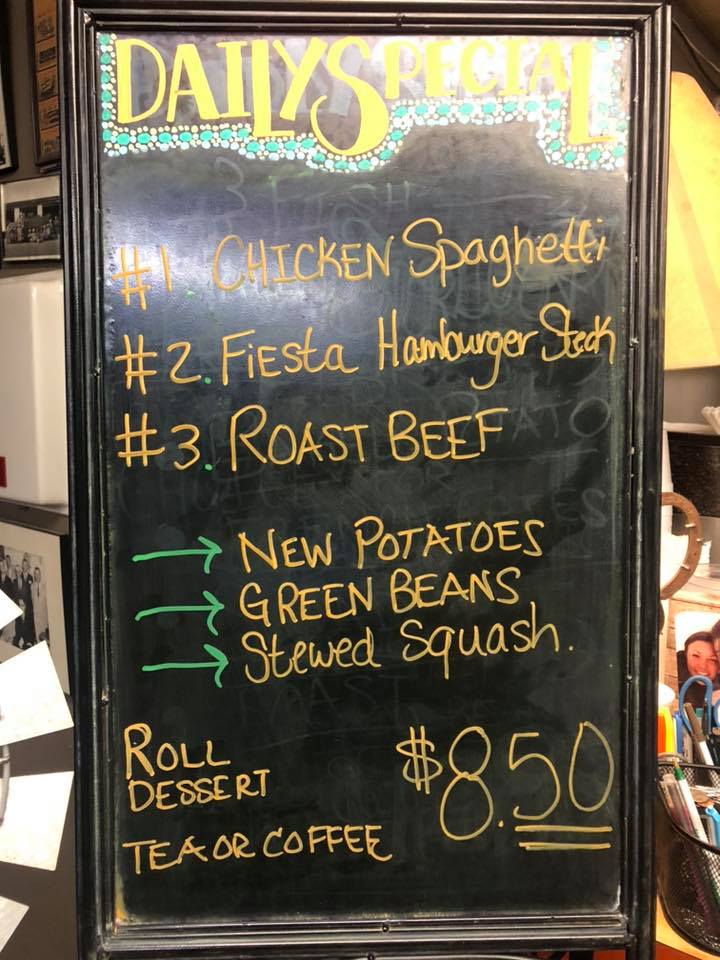 DAILY SPECIAL
#1 CHICKEN Spaghetti
#2. Fiesta Hamburger Steak
#3. ROAST BEEF
→ NEW POTATOES
→ GREEN BEANS
→ Stewed Squash.
ROLL
DESSERT
$8.50
TEA OR COFFEE